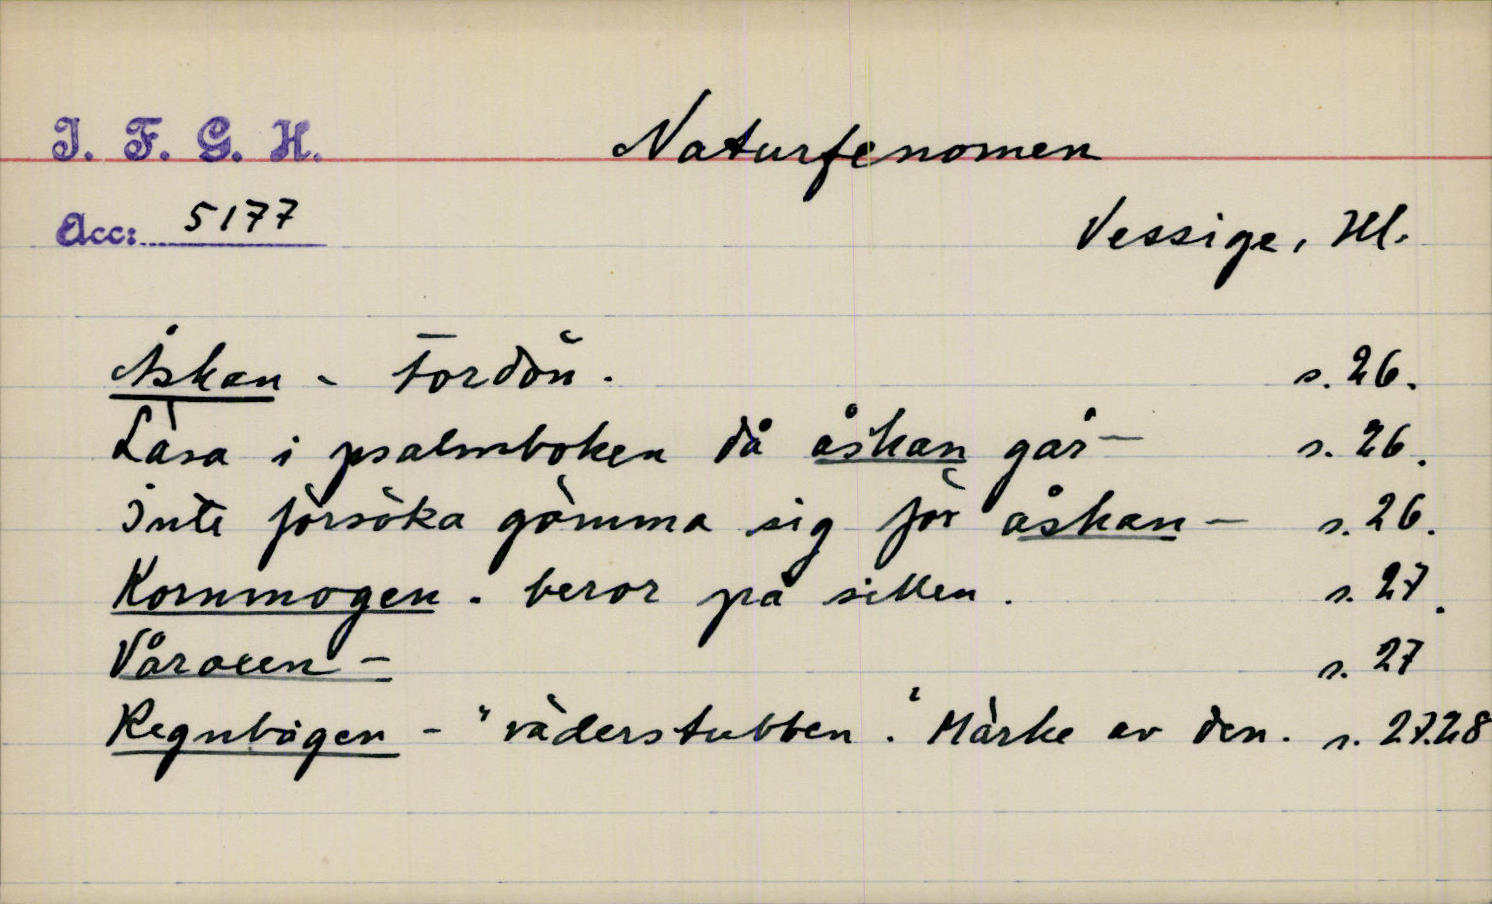 I. F. G. H.
Naturfenomen
Acc: 5177
Vessige, Hl.
Åskan - Tordön. s. 26.
Läsa i psalmboken då åskan går - s. 26.
Inte försöka gömma sig för åskan - s. 26.
Kornmogen. beror på sillen. s. 27.
Våroxen - s. 27
Regnbågen - "väderstubben". Märke av den. s. 27.28